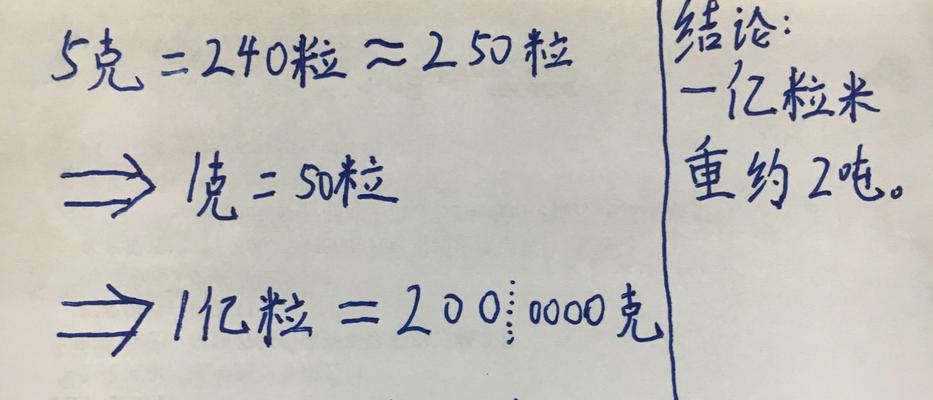 5克=240粒≈250粒
⇒ 1克=50粒
⇒ 1亿粒=200┊0000克
结论:
一亿粒米
重约2吨。